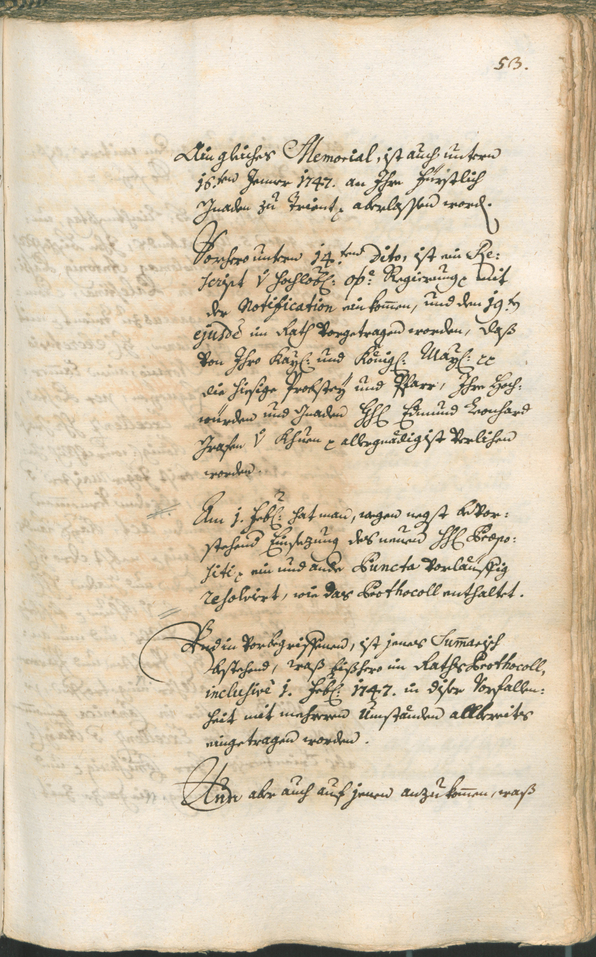 53.
Ein gleiches Memorial, ist auch untern
15.ten Jenner 1747. an Ihre Fürstlich
Gnaden zu Trient, überlassen word.
Vorhero untern 14.ten Dito, ist ein Re:
script v hochlöbl: oö: Regierung, mit
der Notification einkomen, und den 19.tn
ejusdē in Rath vorgetragen worden, daß
von Ihro Kayl: und Königl: Mayl: xx
die hiesige Probstey und Pfarr, Ihre Hoch:
würden und Gnaden HH: Edmund Leonhard
Grafen v Khuen allergnädigist verlihen
worden.
Am 1. Febl: hat man, wegen negst bevor:
stehend Einsezung des neuen HH: Præpo:
siti, ein und ande Puncta vorläuffig
resolvirt, wie das Prothocoll enthaltet.
vorbegriffenen, ist jenes Sumarisch
bestehend, waß bißhero im Raths Prothocoll,
inclusivè 1. Febl: 1747. in diser Vorfallen:
heit mit mehrern Umständen allbereits
eingetragen worden.
Nun aber auch auf jenen anzukomen, waß